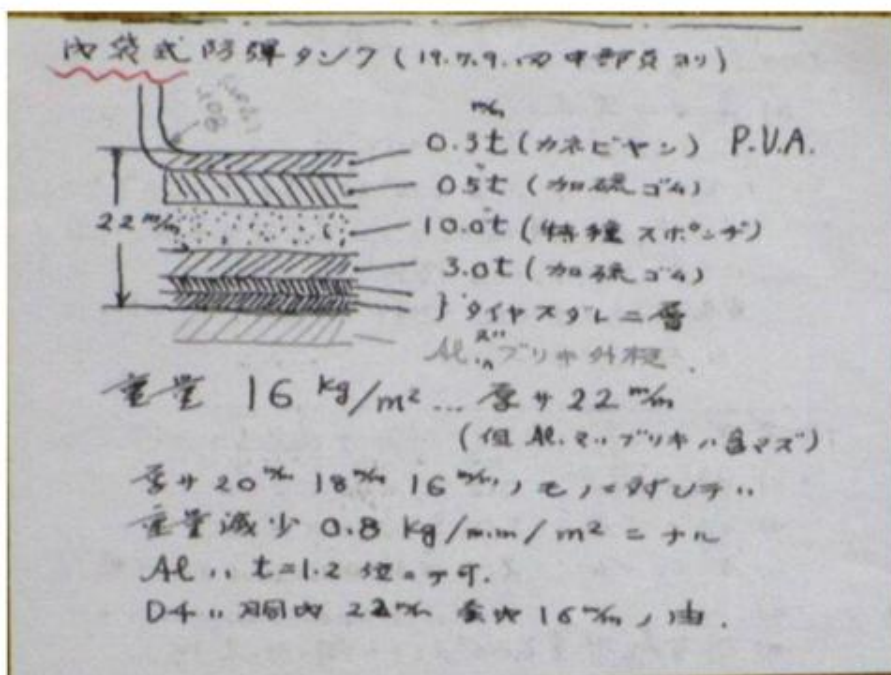 内袋式防弾タンク (19.7.9. 田中部員ヨリ)
m/m
0.3t (カネビヤン) P.V.A.
0.5t (加硫ゴム)
22 m/m
10.0t (特種スポンヂ)
3.0t (加硫ゴム)
} タイヤスダレ二層
Al. ブリキ外槌
重量 16 kg/m² … 厚サ 22 m/m
(但 Al. マタハブリキハ含マズ)
厚サ 20 m/m 18 m/m 16 m/m ノモノニ対シテハ
重量減少 0.8 kg/m.m/m² ニナル
Al ハ t=1.2 位ニテ可.
D4 ハ 胴内 22 m/m 翼内 16 m/m ノ由.